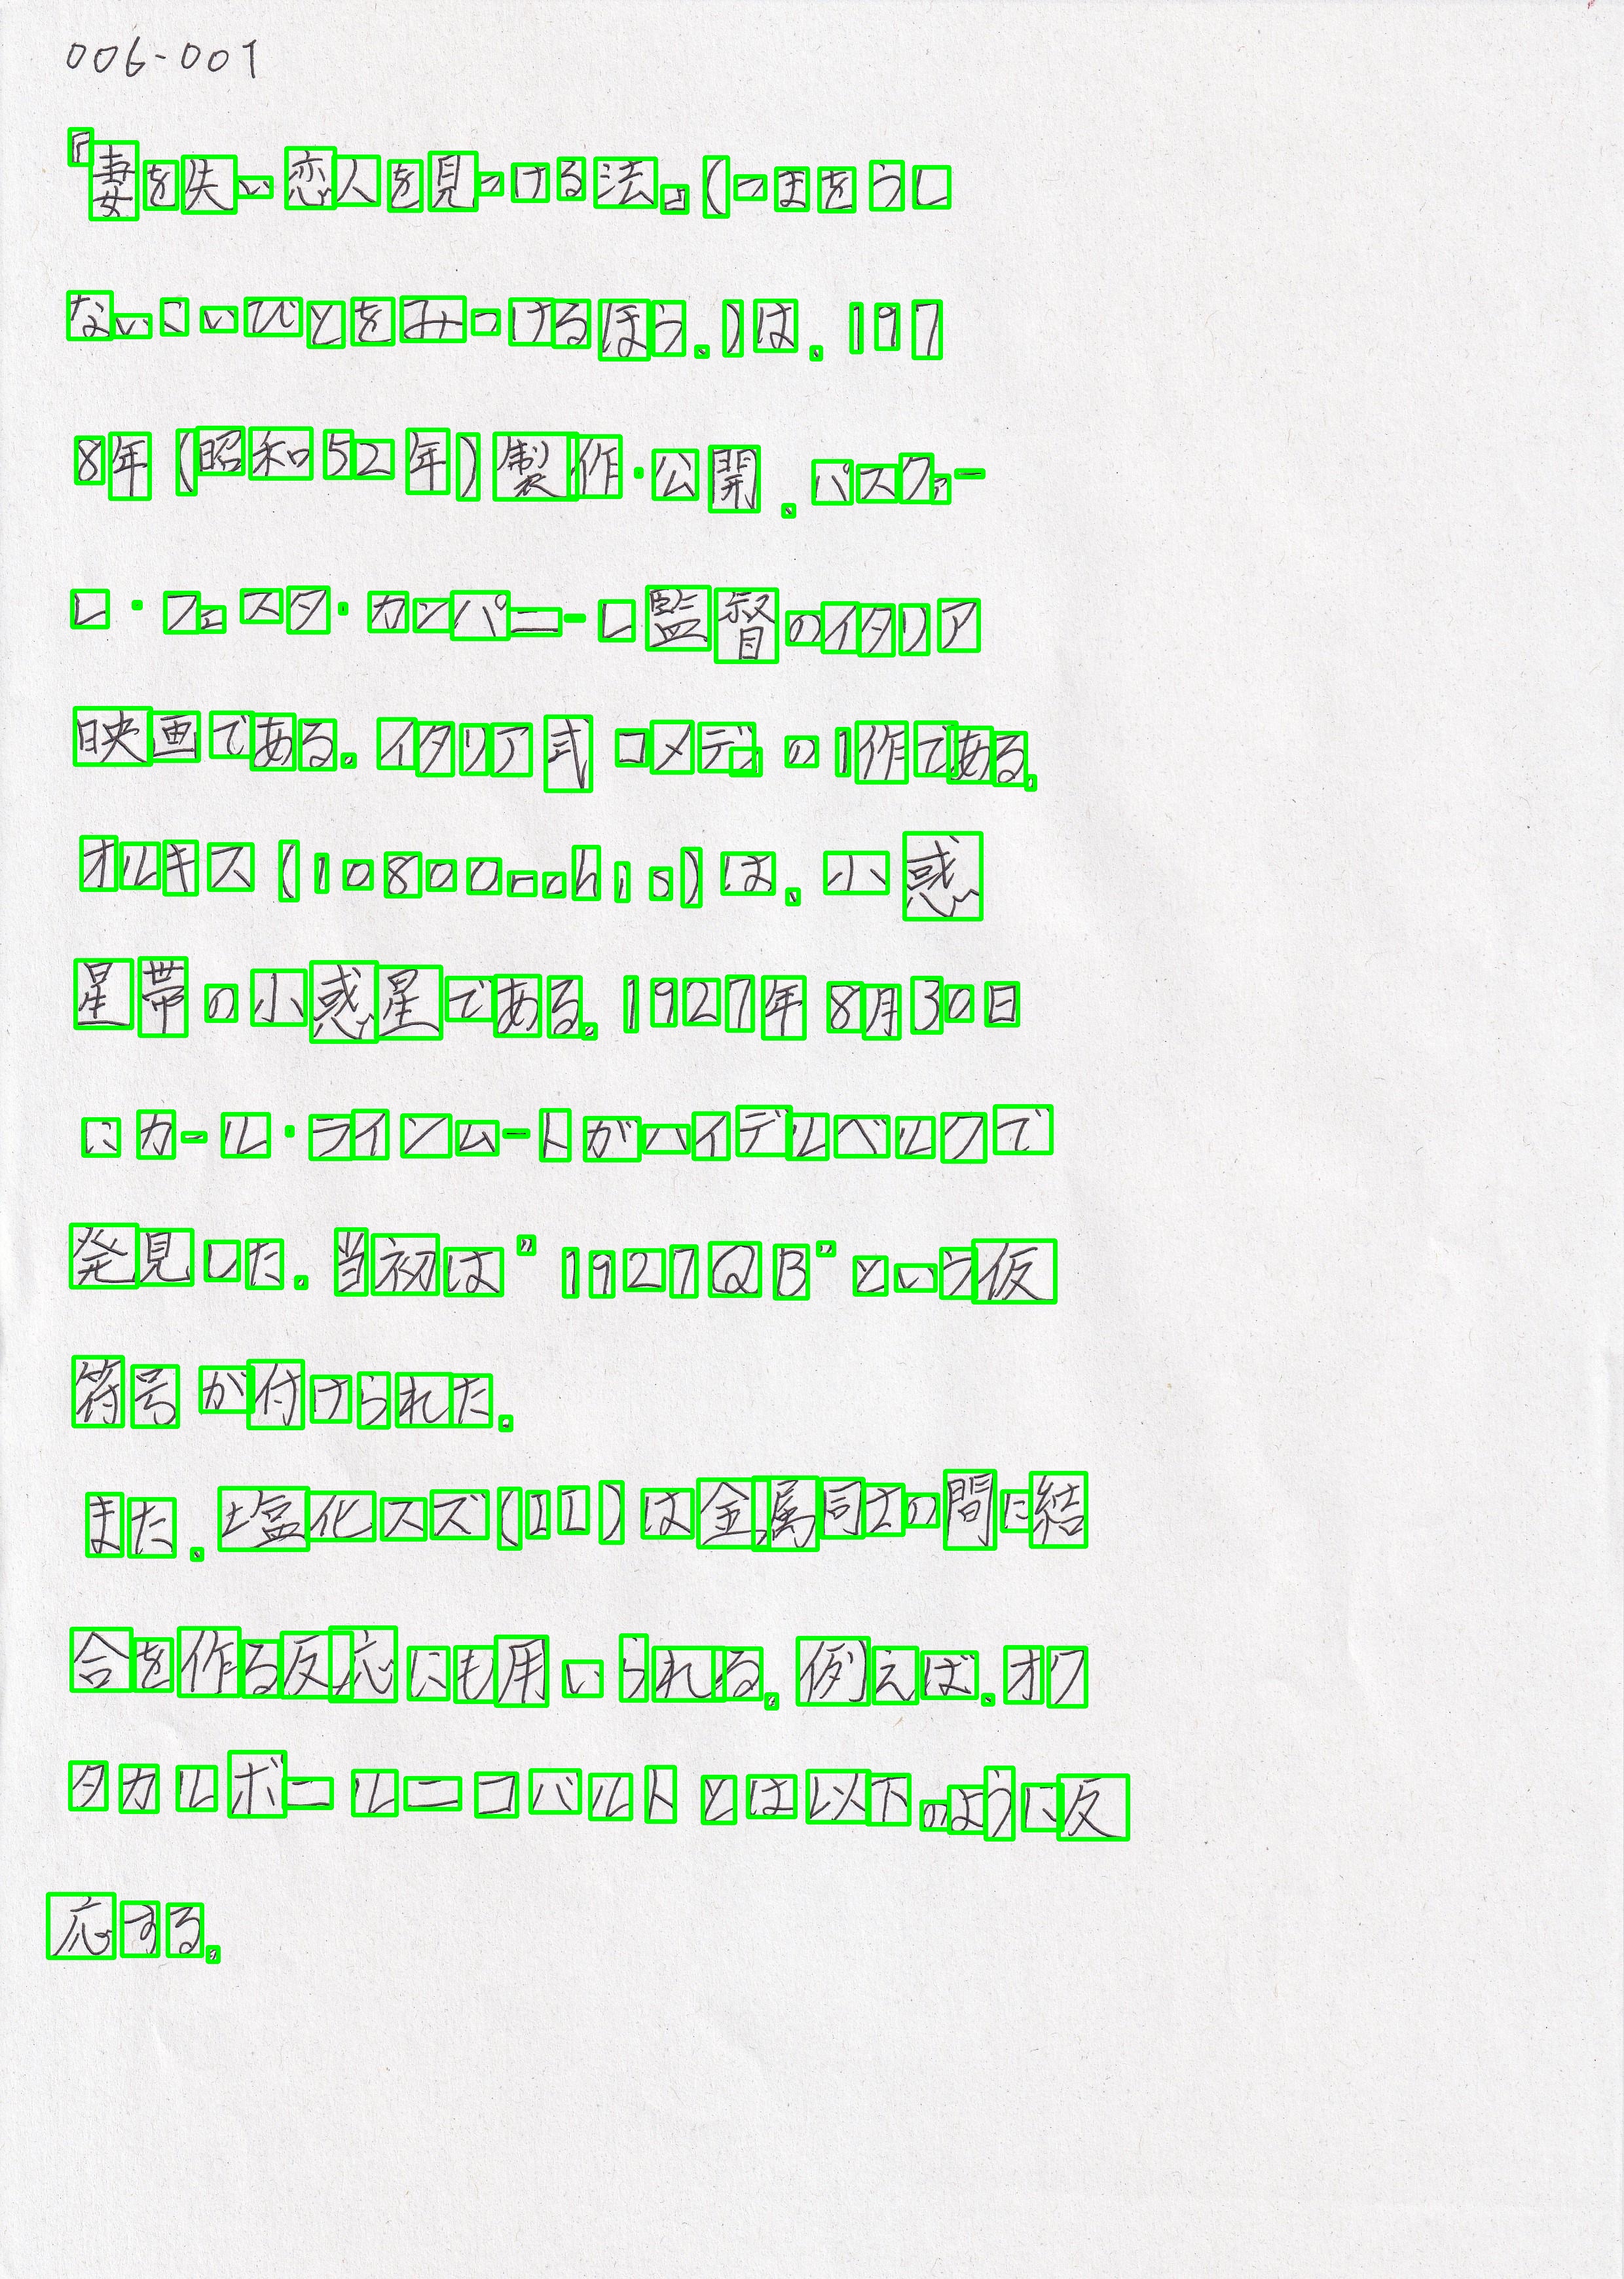 006-001
『妻を失い恋人を見つける法』(つまをうし
ないこいびとをみつけるほう。)は、197
8年(昭和52年)製作・公開、パスクァー
レ・フェスタ・カンパニーレ監督のイタリア
映画である。イタリア式コメディの1作である。
オルキス(10800rchis)は、小惑
星帯の小惑星である。1927年8月30日
にカール・ラインムートがハイデルベルクで
発見した。当初は"1927QB"という仮
符号が付けられた。
また、塩化スズ(II)は金属同士の間に結
合を作る反応にも用いられる。例えば、オク
タカルボニルニコバルトとは以下のように反
応する。